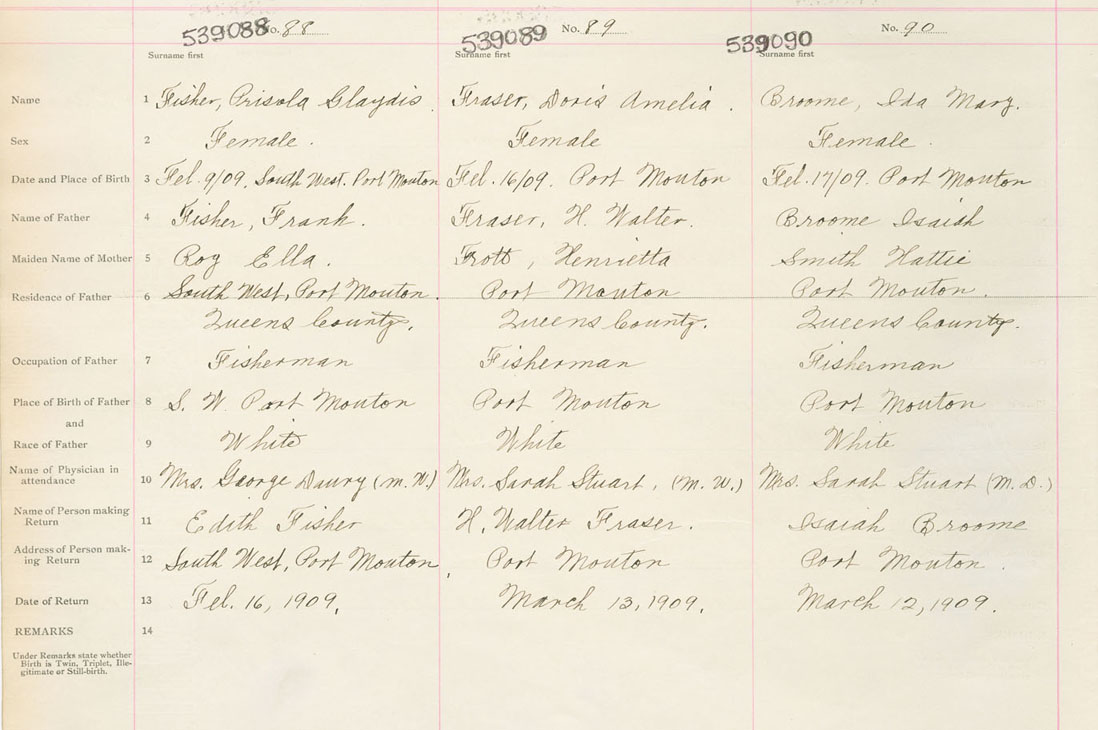 539088 No. 88
539089 No. 89
539090 No. 90
Surname first Surname first Surname first
Name 1 Fisher, Prisola Glaydis. Fraser, Doris Amelia. Broome, Ida Mary.
Sex 2 Female. Female Female.
Date and Place of Birth 3 Feb. 9/09. South West. Port Mouton Feb. 16/09. Port Mouton Feb. 17/09. Port Mouton
Name of Father 4 Fisher, Frank. Fraser, H. Walter. Broome Isaiah
Maiden Name of Mother 5 Roy Ella. Frott, Henrietta Smith Hattie
Residence of Father 6 South West, Port Mouton. Port Mouton Port Mouton.
Queens County, Queens County. Queens County.
Occupation of Father 7 Fisherman Fisherman Fisherman
Place of Birth of Father 8 S. W. Port Mouton Port Mouton Port Mouton
and
Race of Father 9 White White White
Name of Physician in
attendance 10 Mrs. George Daury (M. W.) Mrs. Sarah Stuart, (M. W.) Mrs. Sarah Stuart (M. D.)
Name of Person making
Return 11 Edith Fisher H. Walter Fraser. Isaiah Broome
Address of Person mak-
ing Return 12 South West, Port Mouton, Port Mouton Port Mouton.
Date of Return 13 Feb. 16, 1909. March 13, 1909. March 12, 1909.
REMARKS 14
Under Remarks state whether
Birth is Twin, Triplet, Ille-
gitimate or Still-birth.